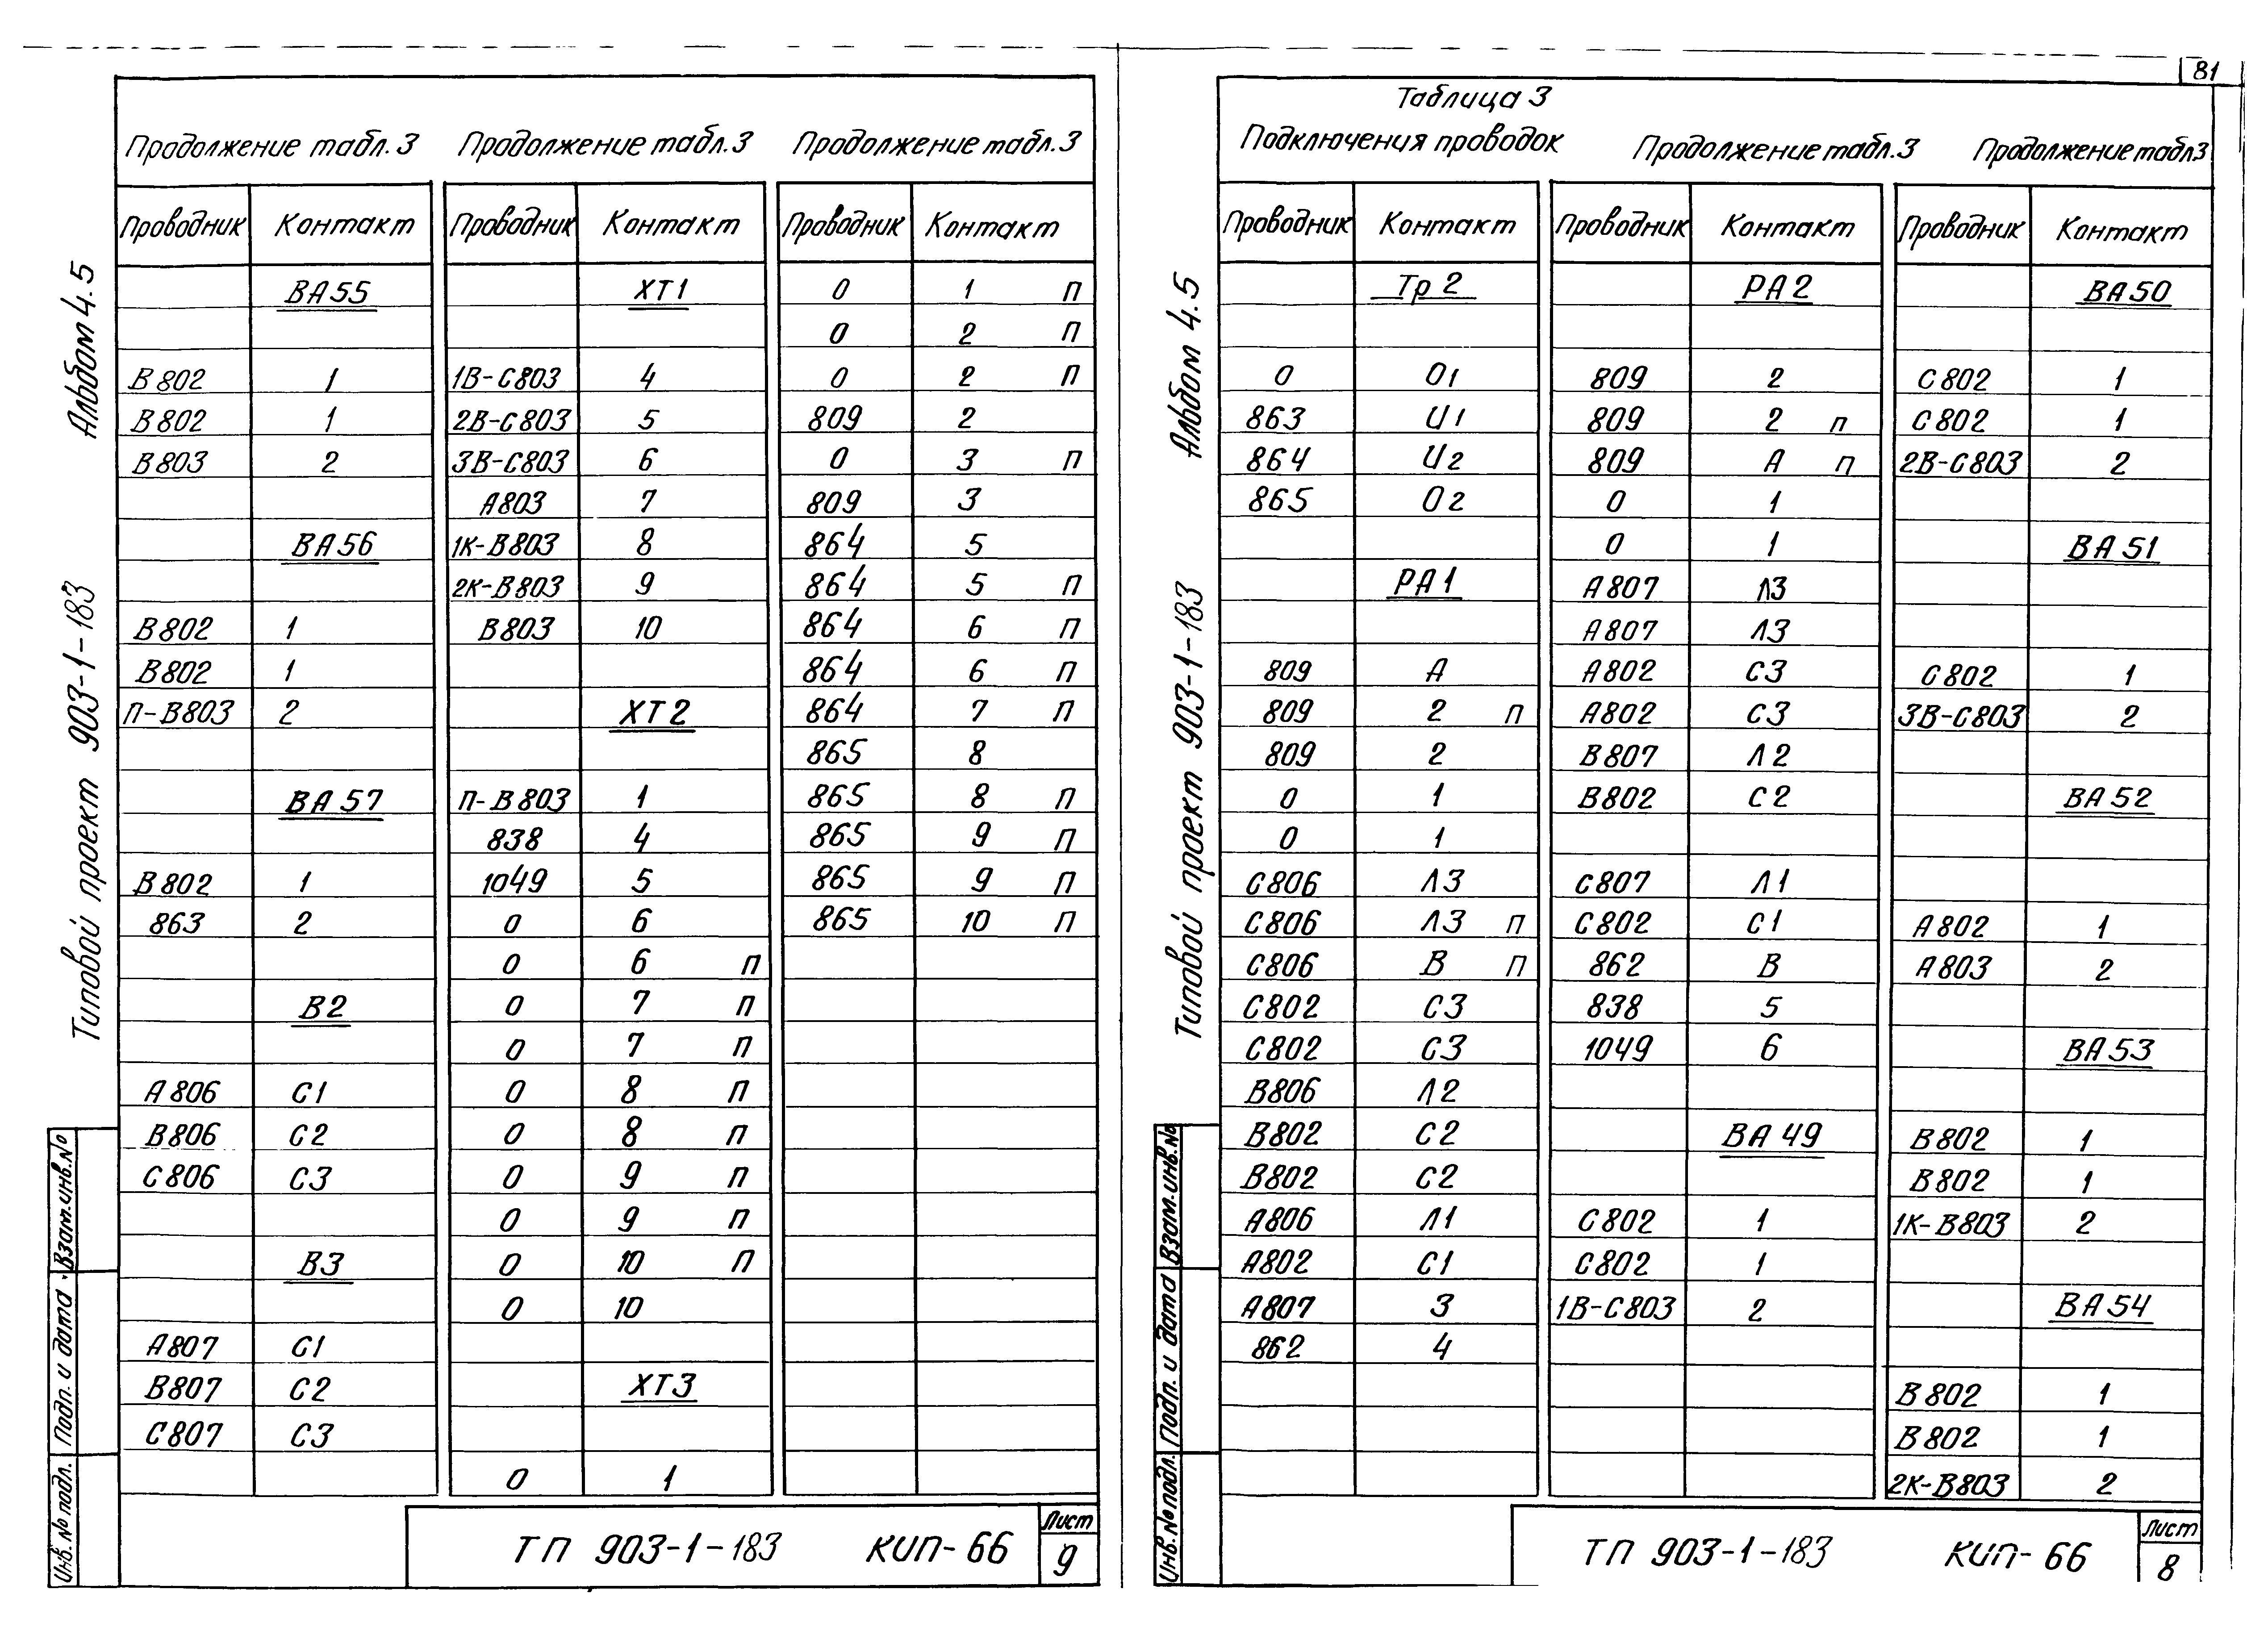 Альбом 4.5
Типовой проект 903-1-183
Взам.инв.№
Подп. и дата
Инв. № подл.
Продолжение табл.3
Проводник Контакт
ВА55
В802 1
В802 1
В803 2
ВА56
В802 1
В802 1
П-В803 2
ВА57
В802 1
863 2
В2
А806 С1
В806 С2
С806 С3
В3
А807 С1
В807 С2
С807 С3
Продолжение табл.3
Проводник Контакт
ХТ1
1В-С803 4
2В-С803 5
3В-С803 6
А803 7
1К-В803 8
2К-В803 9
В803 10
ХТ2
П-В803 1
838 4
1049 5
0 6
0 6 П
0 7 П
0 7 П
0 8 П
0 8 П
0 9 П
0 9 П
0 10 П
0 10
ХТ3
0 1
Продолжение табл.3
Проводник Контакт
0 1 П
0 2 П
0 2 П
809 2
0 3 П
809 3
864 5
864 5 П
864 6 П
864 6 П
864 7 П
865 8
865 8 П
865 9 П
865 9 П
865 10 П
ТП 903-1-183 КИП-66
Лист
9
81
Альбом 4.5
Типовой проект 903-1-183
Взам.инв.№
Подп. и дата
Инв.№ подл.
Таблица 3
Подключения проводок
Проводник Контакт
Тр2
0 О1
863 И1
864 И2
865 О2
РА1
809 А
809 2 П
809 2
0 1
0 1
С806 Л3
С806 Л3 П
С806 В П
С802 С3
С802 С3
В806 Л2
В802 С2
В802 С2
А806 Л1
А802 С1
А807 3
862 4
Продолжение табл.3
Проводник Контакт
РА2
809 2
809 2 п
809 А п
0 1
0 1
А807 Л3
А807 Л3
А802 С3
А802 С3
В807 Л2
В802 С2
С807 Л1
С802 С1
862 В
838 5
1049 6
ВА49
С802 1
С802 1
1В-С803 2
Продолжение табл3
Проводник Контакт
ВА50
С802 1
С802 1
2В-С803 2
ВА51
С802 1
3В-С803 2
ВА52
А802 1
А803 2
ВА53
В802 1
В802 1
1К-В803 2
ВА54
В802 1
В802 1
2К-В803 2
ТП 903-1-183 КИП-66
Лист
8